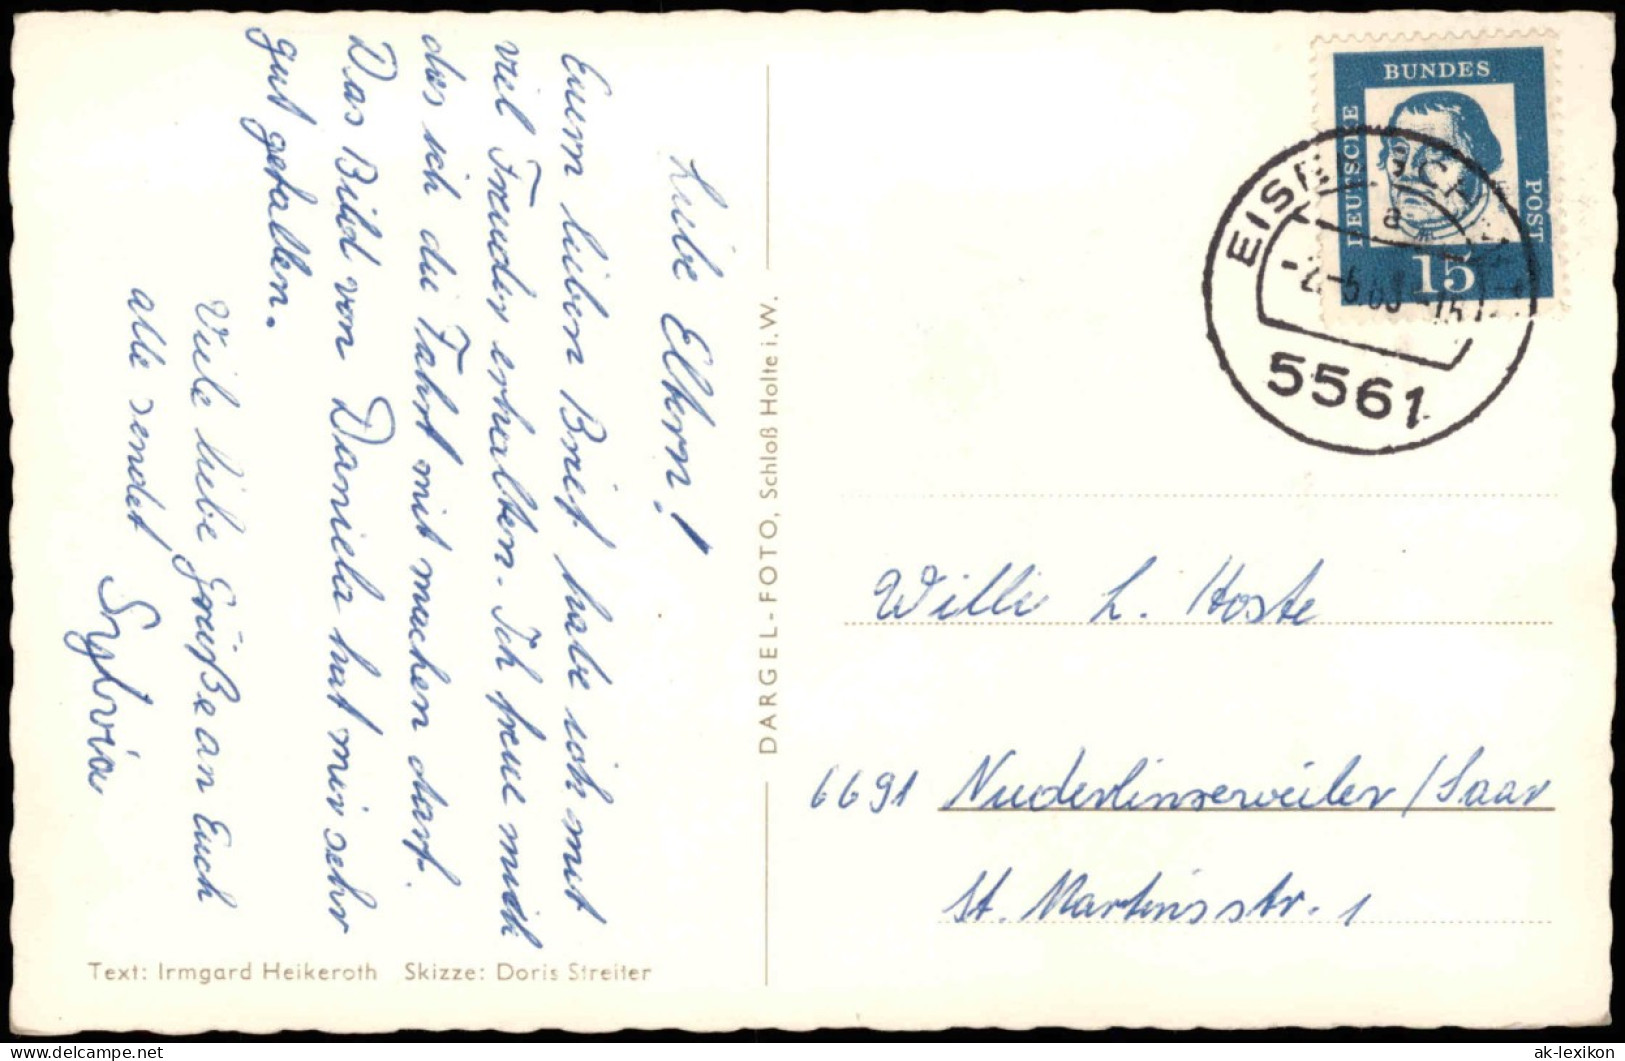 Liebe Eltern!
Euern lieben Brief habe ich mit
viel Freuden erhalten. Ich freue mich
das ich die Fahrt mit machen darf.
Das Bild von Daniela hat mir sehr
gut gefallen.
Viele liebe Grüße an Euch
alle sendet
Sylvia
Text: Irmgard Heikeroth Skizze: Doris Streiter
DARGEL-FOTO, Schloß Holte i. W.
DEUTSCHE
BUNDES
POST
15
a
5561
Willi L. Hoste
6691 Niederlinxweiler/Saar
St. Martinsstr. 1
ak-lexikon